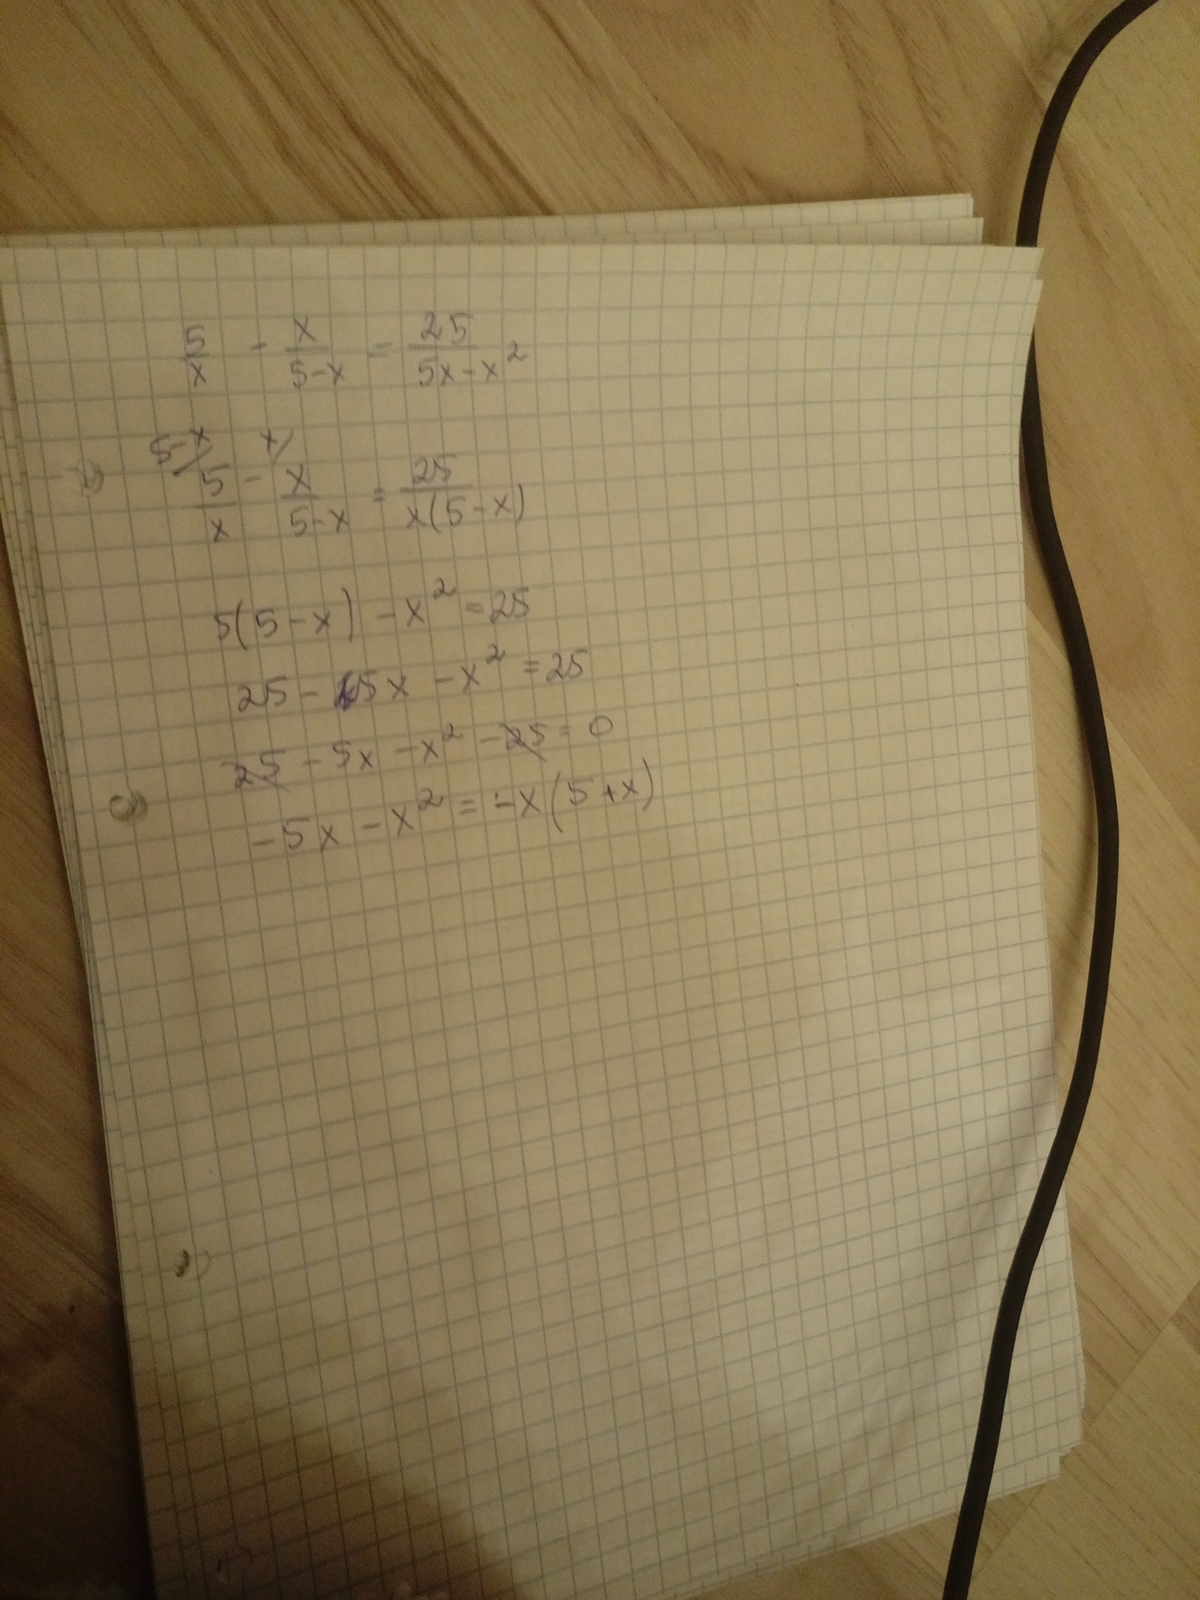 5/x - x/(5-x) = 25/(5x-x²)
5-x/ x/
5/x - x/(5-x) = 25/(x(5-x))
5(5-x) - x² = 25
25 - 5x - x² = 25
25 - 5x - x² - 25 = 0
-5x - x² = -x(5+x)